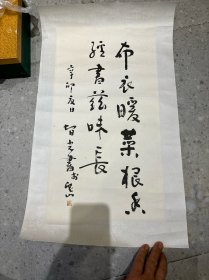 布衣暖菜根香
经書滋味長
辛卯夏日
智光書於